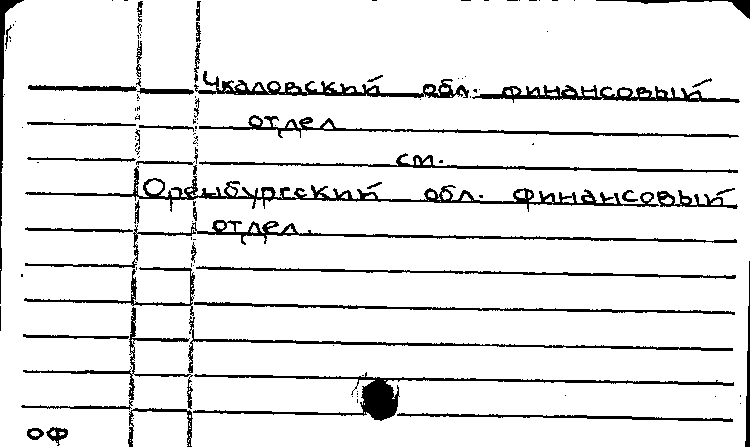 Чкаловский обл. финансовый
отдел
см.
Оренбургский обл. финансовый
отдел.
ОФ